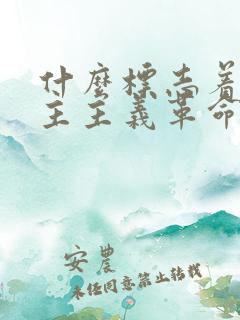 什麼標志着
主主義革命
安農
未经同意禁止转载